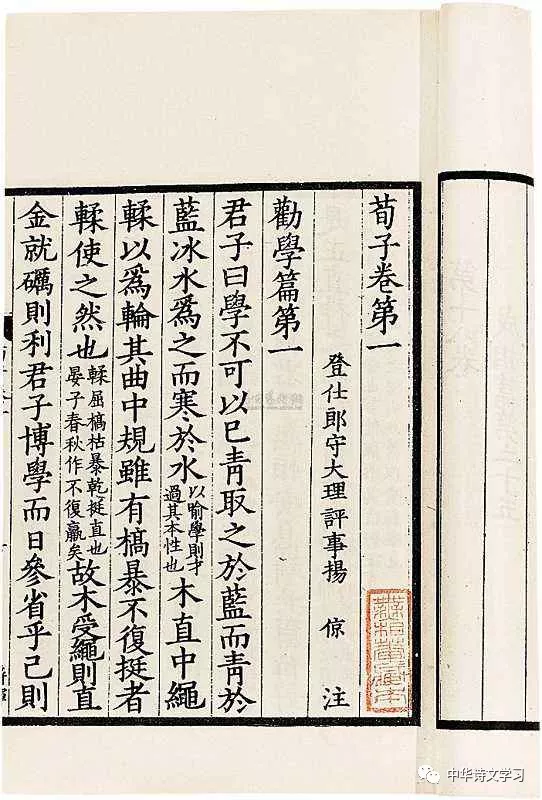 荀子卷第一
登仕郎守大理評事楊倞注
勸學篇第一
君子曰學不可以已青取之於藍而青於
藍冰水爲之而寒於水以喻學則才過其本性也木直中繩
輮以爲輪其曲中規雖有槁暴不復挺者
輮使之然也輮屈槁枯暴乾挺直也晏子春秋作不復羸矣故木受繩則直
金就礪則利君子博學而日參省乎己則
中华诗文学习